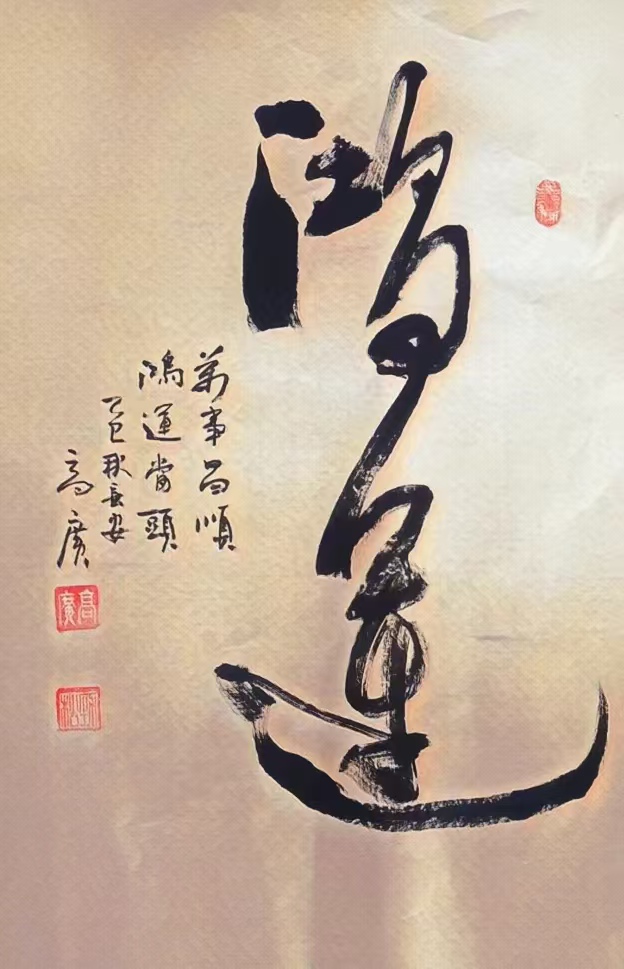 鴻運
萬事皆順
鴻運當頭
乙巳秋長安
高廣
高廣